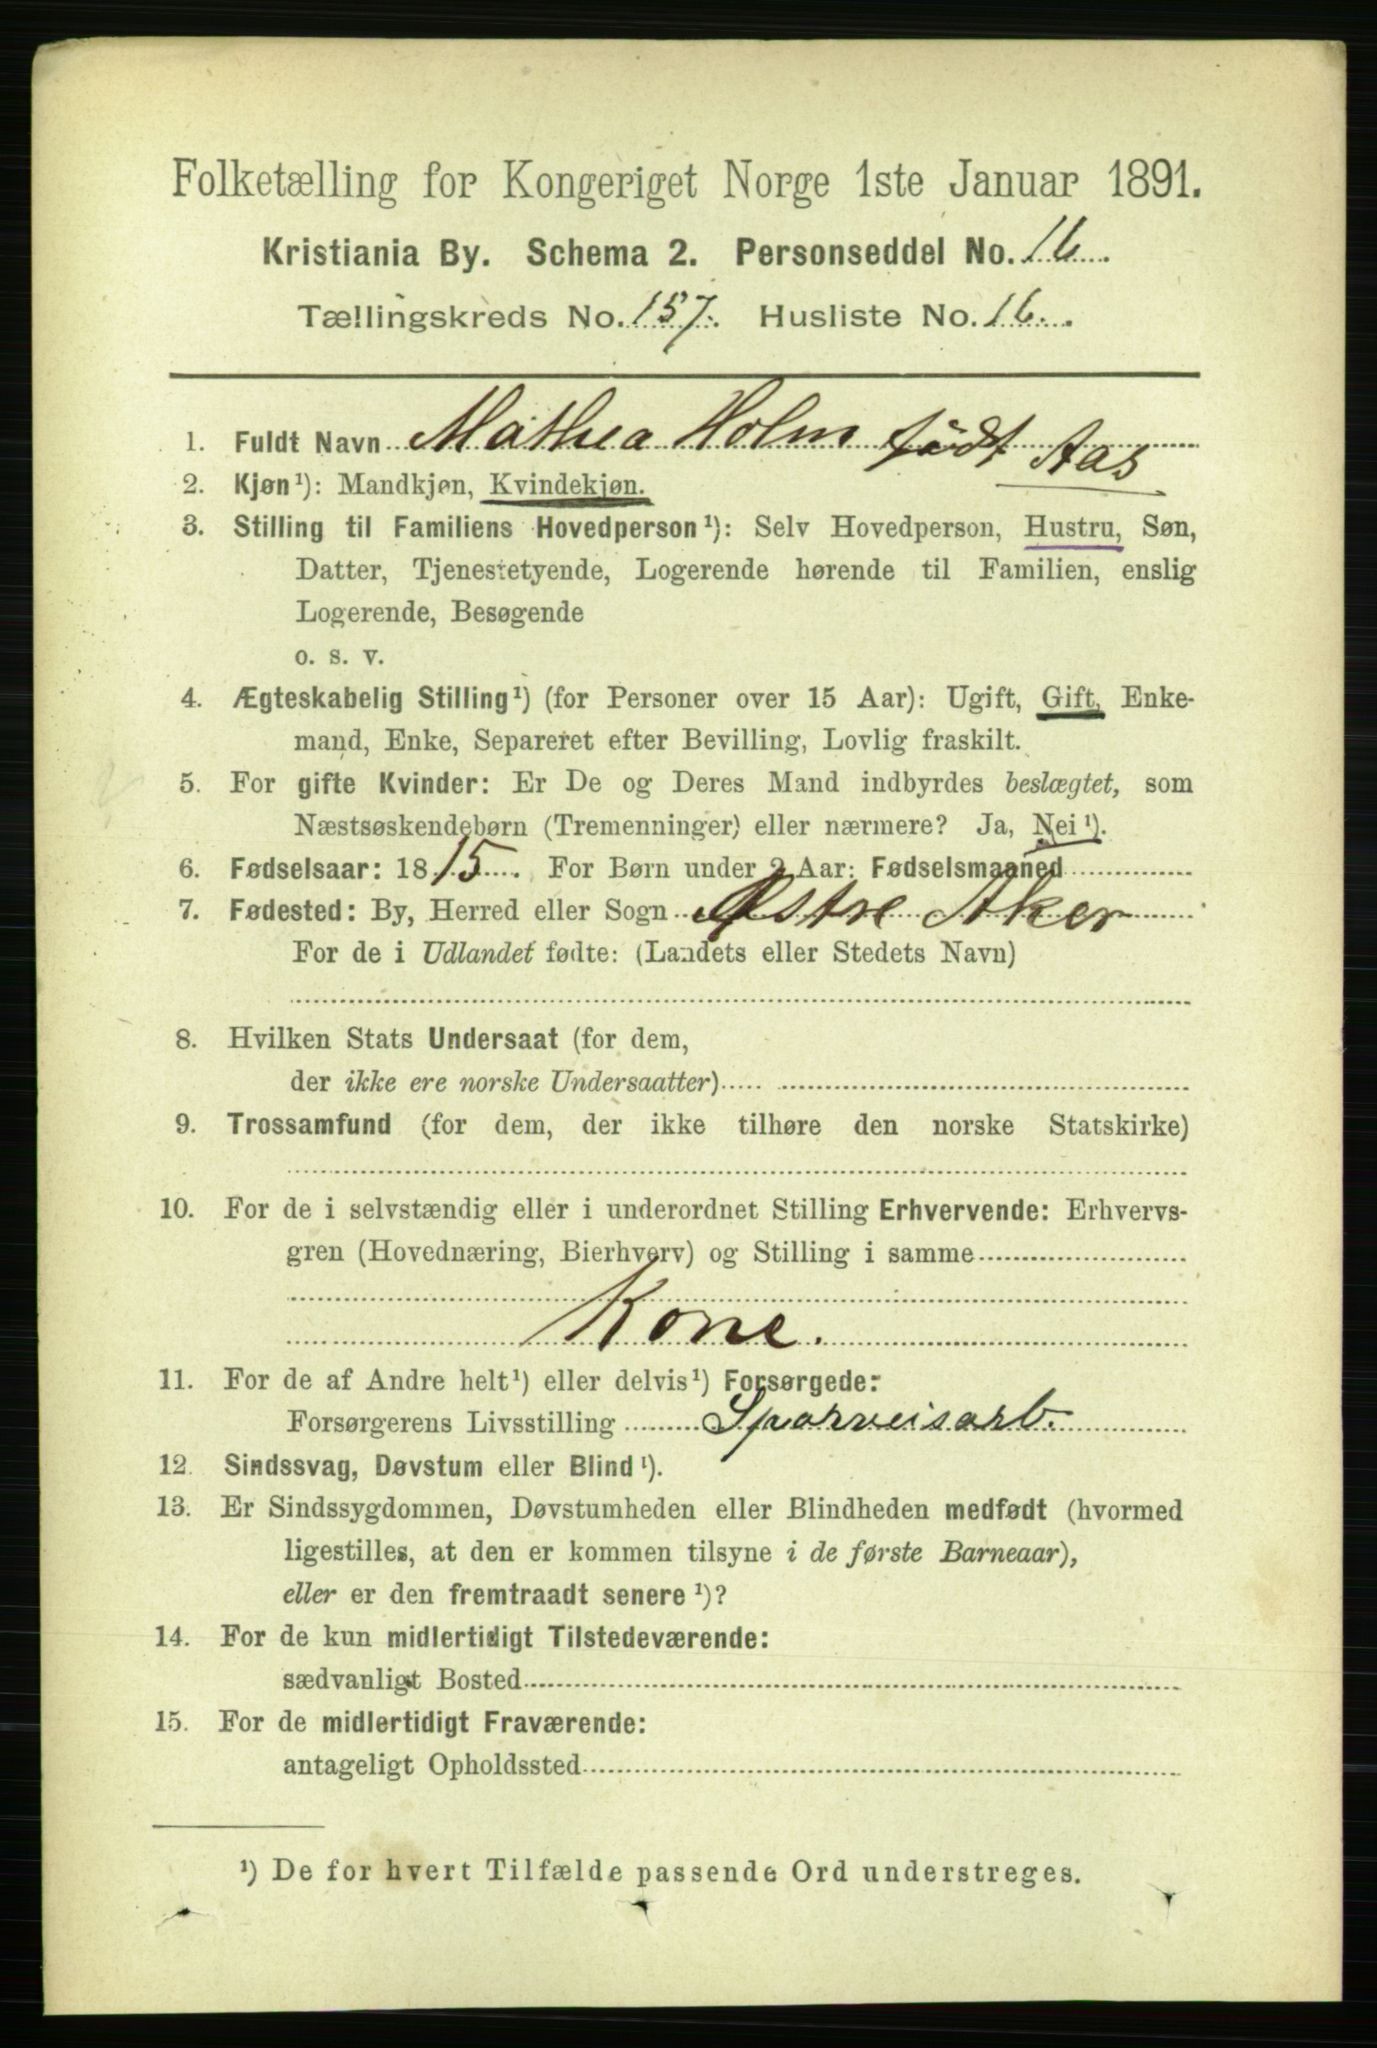 Folketælling for Kongeriget Norge 1ste Januar 1891.
Kristiania By. Schema 2. Personseddel No. 16.
Tællingskreds No. 157. Husliste No. 16.
1. Fuldt Navn Mathea Holm födt Aas
2. Kjøn¹): Mandkjøn, Kvindekjøn.
3. Stilling til Familiens Hovedperson¹): Selv Hovedperson, Hustru, Søn,
Datter, Tjenestetyende, Logerende hørende til Familien, enslig
Logerende, Besøgende
o. s. v.
4. Ægteskabelig Stilling¹) (for Personer over 15 Aar): Ugift, Gift, Enke-
mand, Enke, Separeret efter Bevilling, Lovlig fraskilt.
5. For gifte Kvinder: Er De og Deres Mand indbyrdes beslægtet, som
Næstsøskendebørn (Tremenninger) eller nærmere? Ja, Nei¹).
6. Fødselsaar: 1815. For Børn under 2 Aar: Fødselsmaaned
7. Fødested: By, Herred eller Sogn Østre Aker
For de i Udlandet fødte: (Landets eller Stedets Navn)
8. Hvilken Stats Undersaat (for dem,
der ikke ere norske Undersaatter)
9. Trossamfund (for dem, der ikke tilhøre den norske Statskirke)
10. For de i selvstændig eller i underordnet Stilling Erhvervende: Erhvervs-
gren (Hovednæring, Bierhverv) og Stilling i samme
Kone.
11. For de af Andre helt¹) eller delvis¹) Forsørgede:
Forsørgerens Livsstilling Sporveisarb.
12. Sindssvag, Døvstum eller Blind¹).
13. Er Sindssygdommen, Døvstumheden eller Blindheden medfødt (hvormed
ligestilles, at den er kommen tilsyne i de første Barneaar),
eller er den fremtraadt senere¹)?
14. For de kun midlertidigt Tilstedeværende:
sædvanligt Bosted
15. For de midlertidigt Fraværende:
antageligt Opholdssted
¹) De for hvert Tilfælde passende Ord understreges.